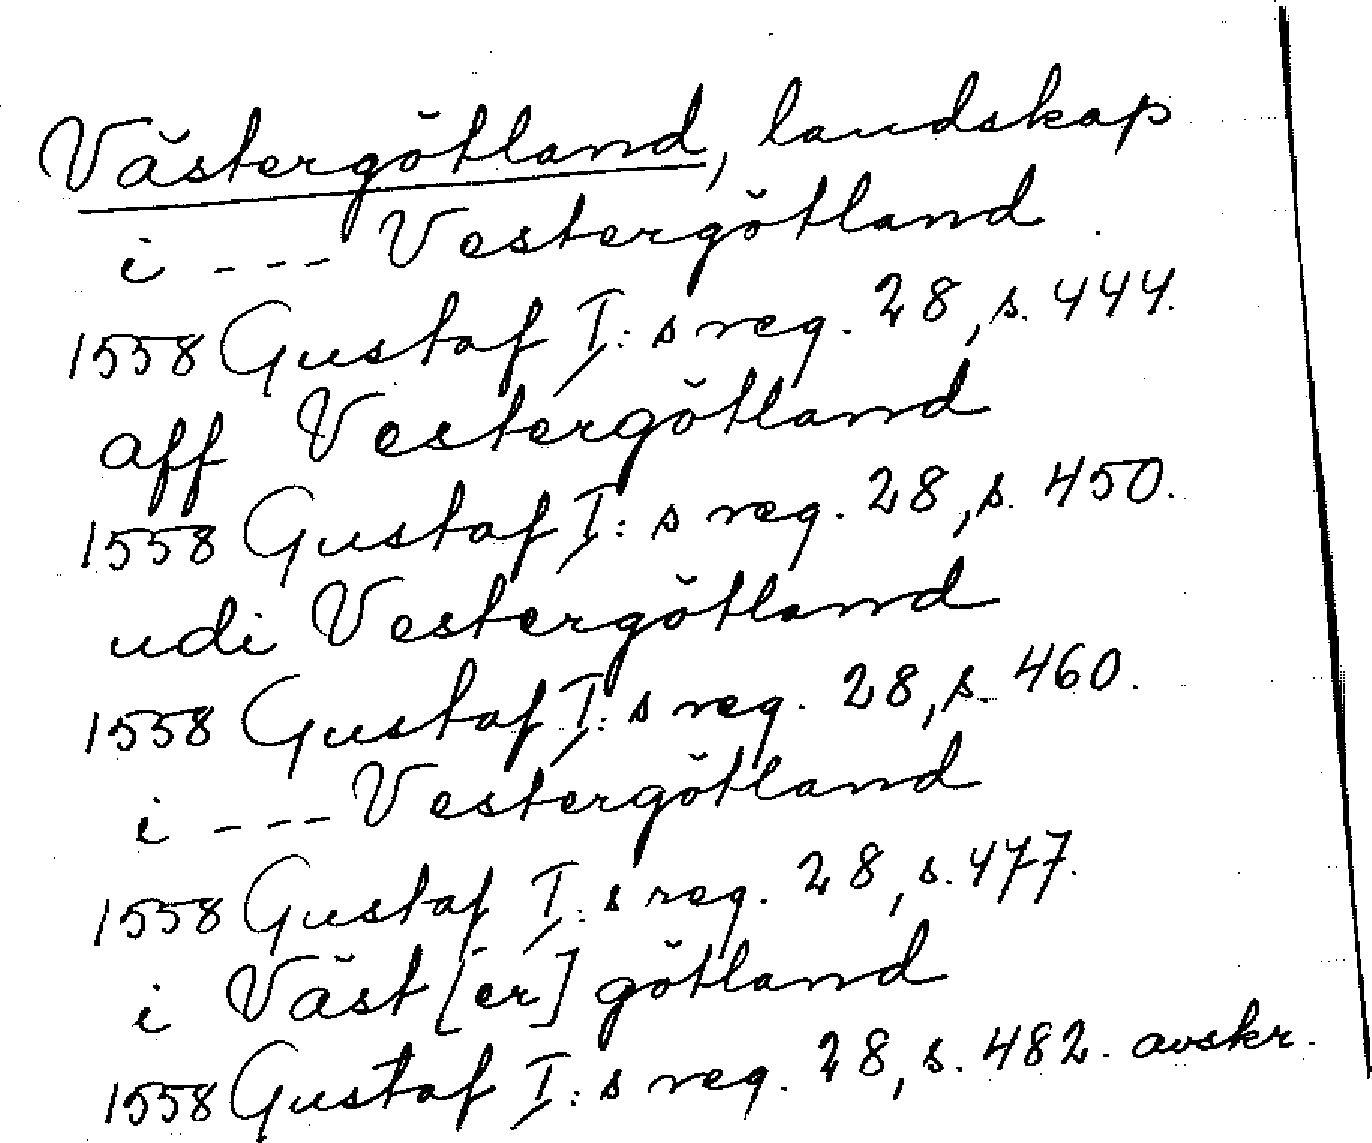 Västergötland, landskap
i --- Vestergötland
1558 Gustaf I:s reg. 28, s. 444.
aff Vestergötland
1558 Gustaf I:s reg. 28, s. 450.
udi Vestergötland
1558 Gustaf I:s reg. 28, s. 460.
i --- Vestergötland
1558 Gustaf I:s reg. 28, s. 477.
i Väst[er]götland
1558 Gustaf I:s reg. 28, s. 482. avskr.